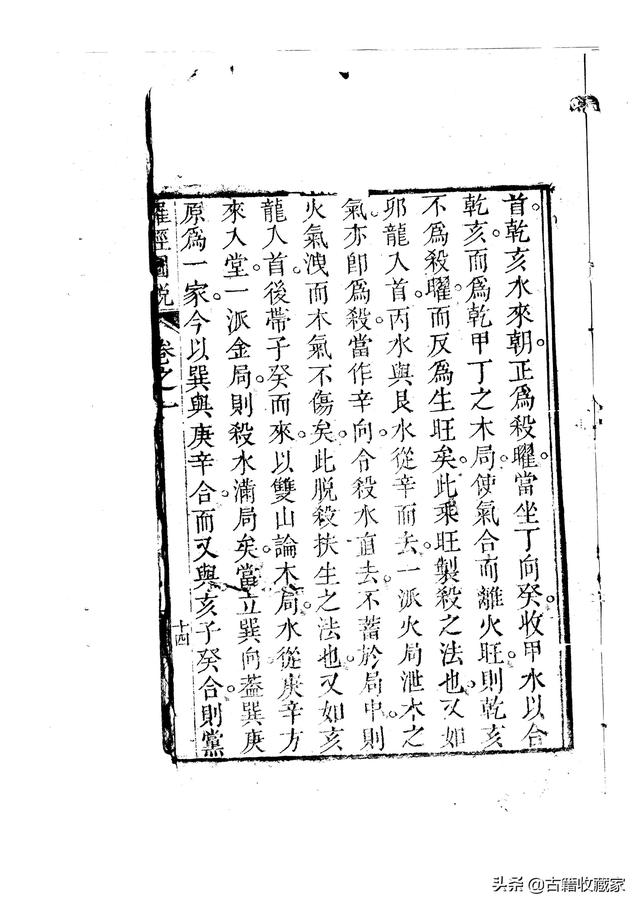 首乾亥水來朝。正爲殺曜。當坐丁向癸。收甲水以合
乾亥。而爲乾甲丁之木局。使氣合而離火旺。則乾亥
不爲殺曜。而反爲生旺矣。此乘旺製殺之法也。又如
卯龍入首。丙水與艮水從辛而去。一派火局。泄木之
氣。亦卽爲殺。當作辛向。令殺水直去。不蓄於局中。則
火氣洩而木氣不傷矣。此脱殺扶生之法也。又如亥
龍入首。後帯子癸而來。以雙山論木局。水從庚辛方
來入堂。一派金局。則殺水滿局矣。當立巽向。葢巽庚
原爲一家。今以巽與庚辛合。而又與亥子癸合。則黨
羅經圖說 卷之一 十四
头条 @古籍收藏家